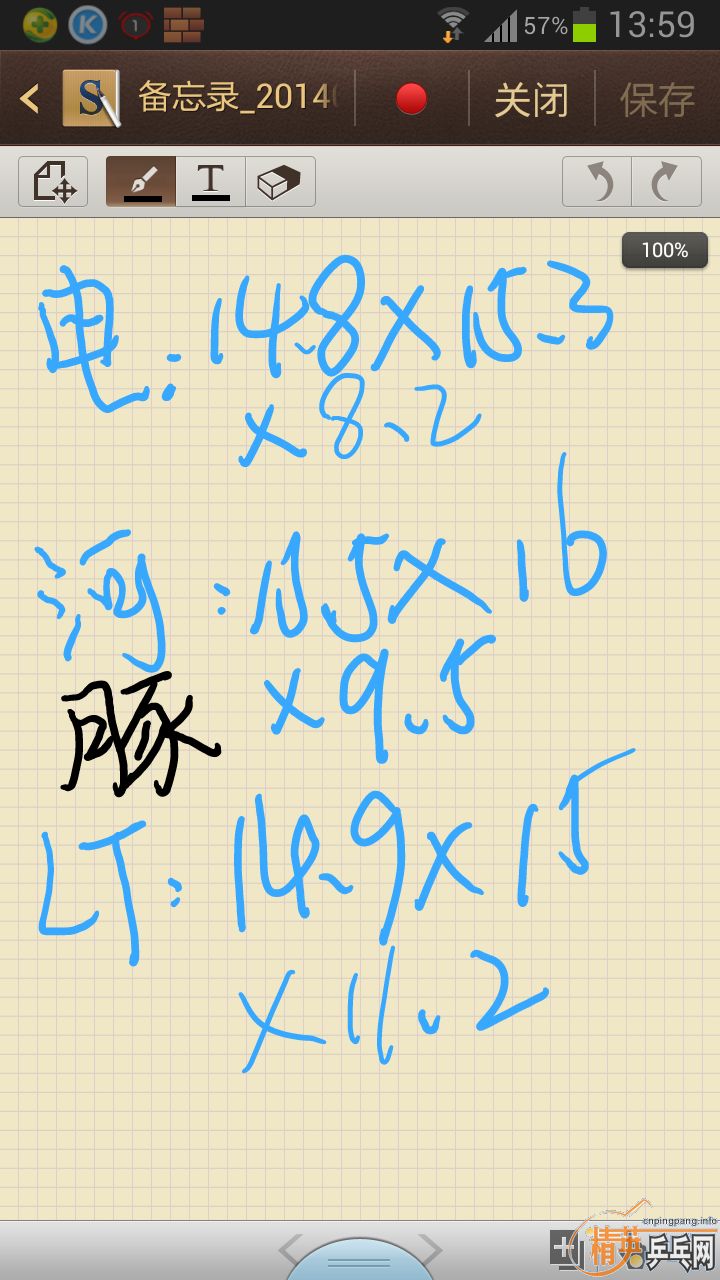 57% 13:59
备忘录_2014
关闭
保存
T
100%
电:14.8×15.3
×8.2
河:15.5×16
×9.5
豚
LT:14.9×15
×11.2
cnpingpang.info
精英乒乓网